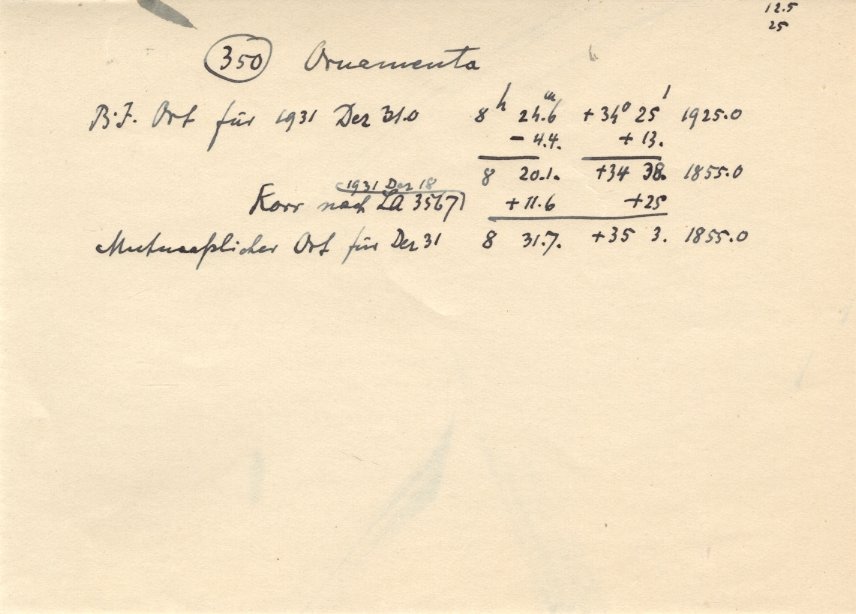 12.5
25
350 Ornamenta
B.J. Ort für 1931 Dez 31.0 8h 24m.6 +34° 25' 1925.0
- 4.4. + 13.
8 20.1. +34 38. 1855.0
1931 Dez 18
Korr nach LA 3567) +11.6 +25
Mutmaßlicher Ort für Dez 31 8 31.7. +35 3. 1855.0